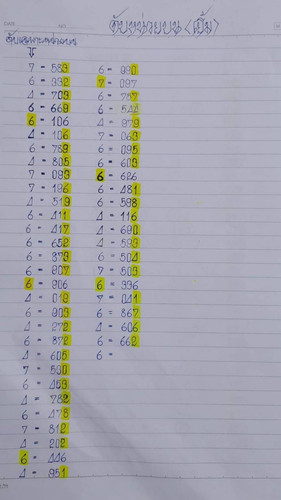 จับหน่วยบน (เบิ้ล)
7 - 589
6 = 992
4 = 709
6 = 669
6 = 106
4 = 106
6 = 789
4 = 805
7 = 093
7 = 196
4 = 519
6 = 411
6 = 417
6 = 652
6 = 379
6 = 907
6 = 906
4 = 019
6 = 909
4 = 272
6 = 872
4 = 605
7 = 500
6 = 459
4 = 782
6 = 478
7 = 812
4 = 202
6 = 446
4 = 951
6 = 990
7 = 097
6 = 757
6 = 544
4 = 979
7 = 069
6 = 095
6 = 609
6 = 626
6 = 481
6 = 598
4 = 116
4 = 690
4 = 599
6 = 504
7 = 509
6 = 996
7 = 041
6 = 867
4 = 606
6 = 662
6 =